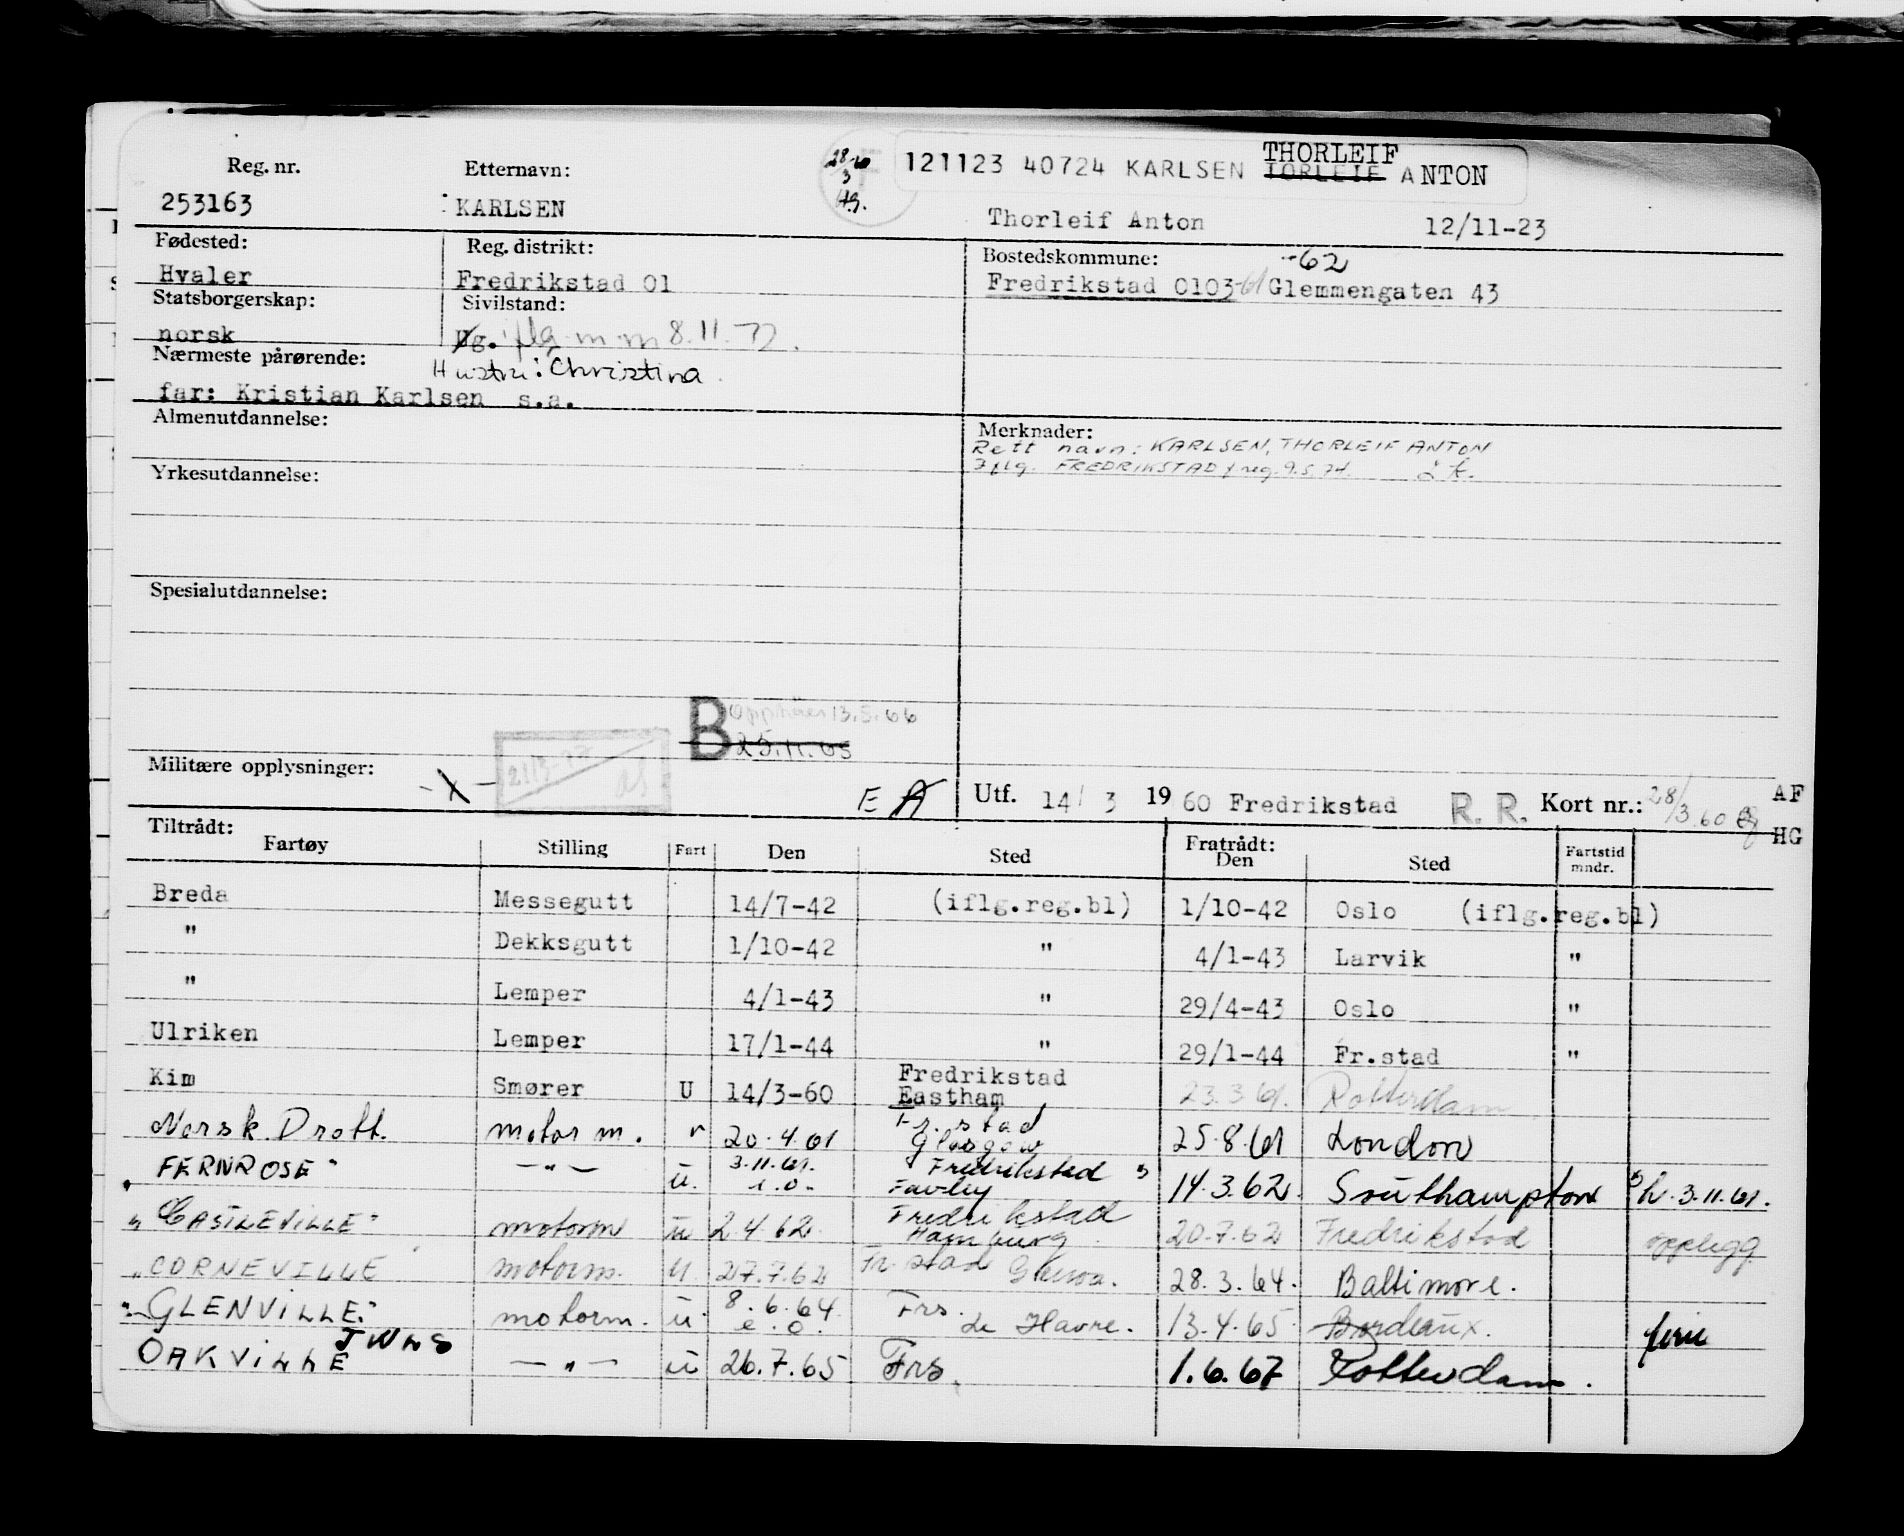 28/3-60 Hg.
121123 40724 KARLSEN TORLEIF THORLEIF ANTON
Reg. nr. Etternavn:
253163 KARLSEN Thorleif Anton 12/11-23
Fødested: Reg. distrikt: Bostedskommune: -62
Hvaler Fredrikstad 01 Fredrikstad 0103-61 Glemmengaten 43
Statsborgerskap: Sivilstand:
norsk Ug. iflg m.m 8.11.72.
Nærmeste pårørende: Hustru: Christina
far: Kristian Karlsen s.a.
Almenutdannelse: Merknader:
Rett navn: KARLSEN, THORLEIF ANTON
Iflg. FREDRIKSTAD f.reg. 9.5.74.
Yrkesutdannelse:
Spesialutdannelse:
B Opphäves 13.5.66
25.11.65
Militære opplysninger: -X-
E A Utf. 14/ 3 1960 Fredrikstad R. R. Kort nr.: 28/3.60 AF
HG
Tiltrådt: Fratrådt:
Fartøy Stilling Fart Den Sted Den Sted Fartstid mndr.
Breda Messegutt 14/7-42 (iflg.reg.bl) 1/10-42 Oslo (iflg.reg.bl)
" Dekksgutt 1/10-42 " 4/1-43 Larvik "
" Lemper 4/1-43 " 29/4-43 Oslo "
Ulriken Lemper 17/1-44 " 29/1-44 Fr.stad "
Kim Smører U 14/3-60 Fredrikstad Eastham 23.3.61. Rotterdam
Norsk Drott. motor m. 20.4.61 Fr.stad Glasgow 25.8.61 London
"FERNROSE" —"— u. 3.11.61. e.o. Fredrikstad Fawley 14.3.62. Southampton h. 3.11.61.
"CASTLEVILLE" motorm u 2.4.62. Fredrikstad Hamburg 20.7.62 Fredrikstad opplegg
"CORNEVILLE motorm. u 27.7.62 Fr.stad Genoa. 28.3.64. Baltimore.
"GLENVILLE." motorm. u. 8.6.64. e.o. Frs. Le Havre. 13.4.65 Bordeaux. ferie
OAKVILLE JWLS —"— u 26.7.65 Frs. 1.6.67 Rotterdam.